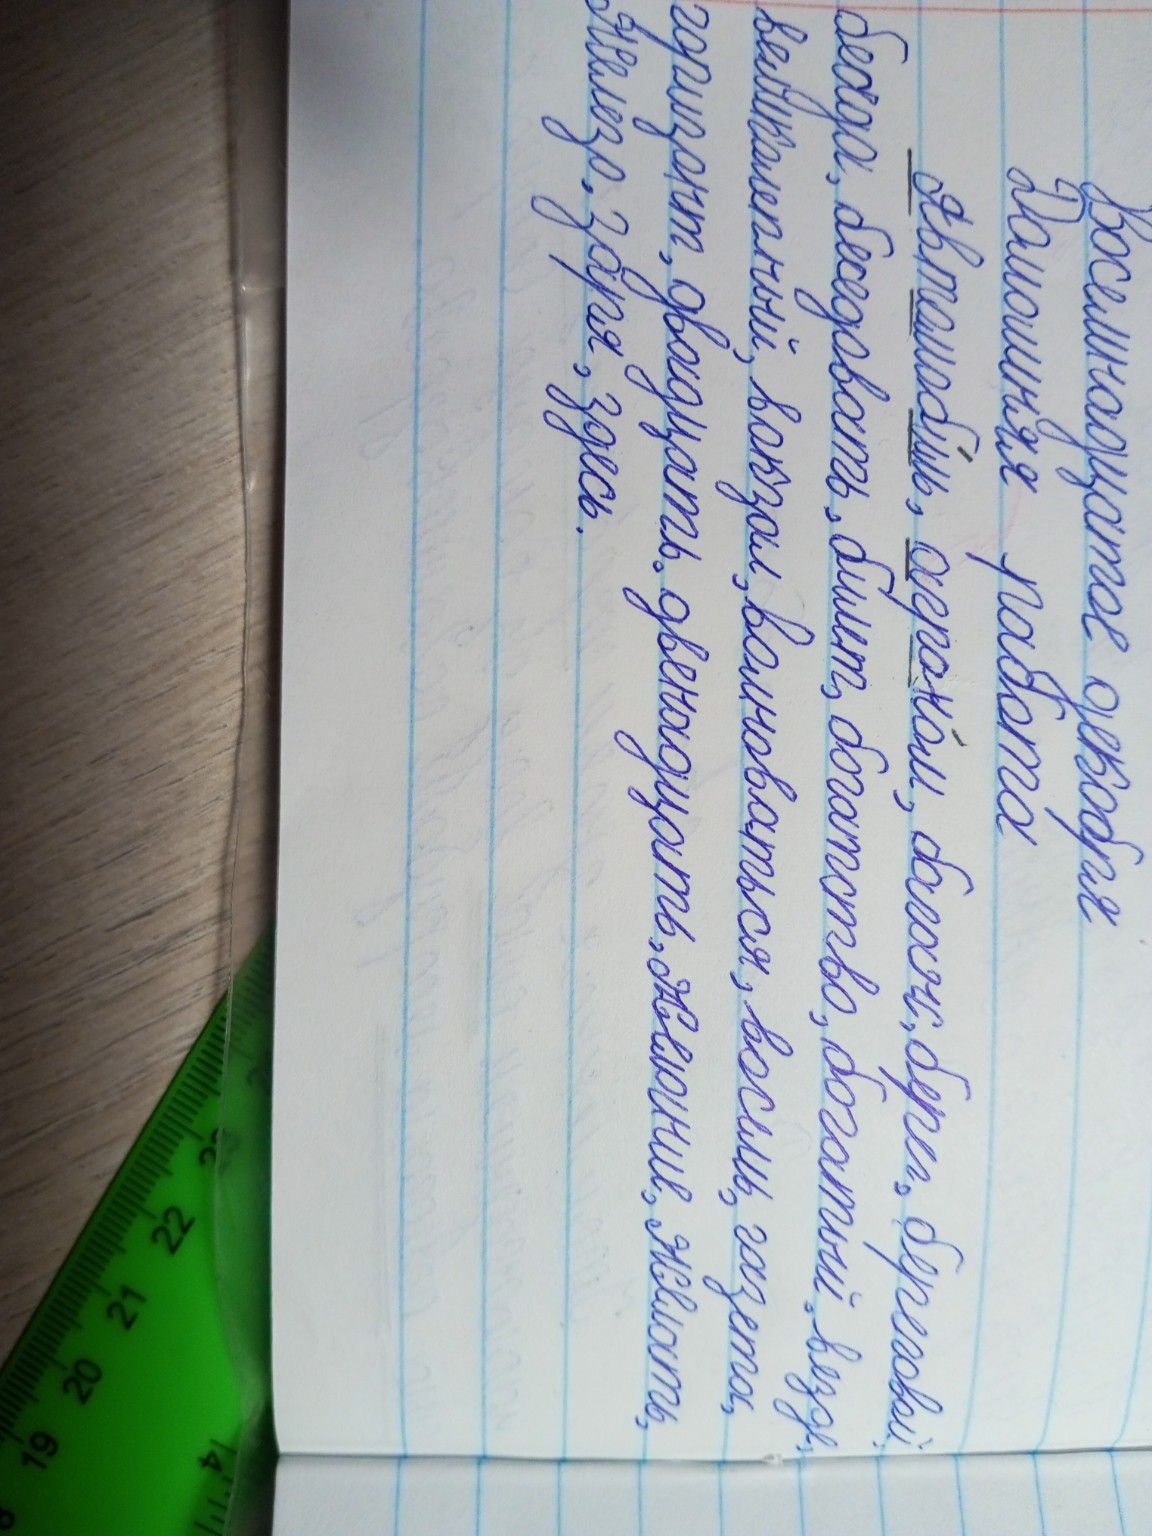 Восемнадцатое декабря
Домашняя работа
Автомобиль, агроном, багаж, берег, береговой,
беседа, беседовать, билет, богатство, богатый, везде,
великолепный, вокзал, волноваться, восемь, газета,
горизонт, двадцать, двенадцать, желание, желать,
железо, заря, здесь.
23
22
21
20
19
4